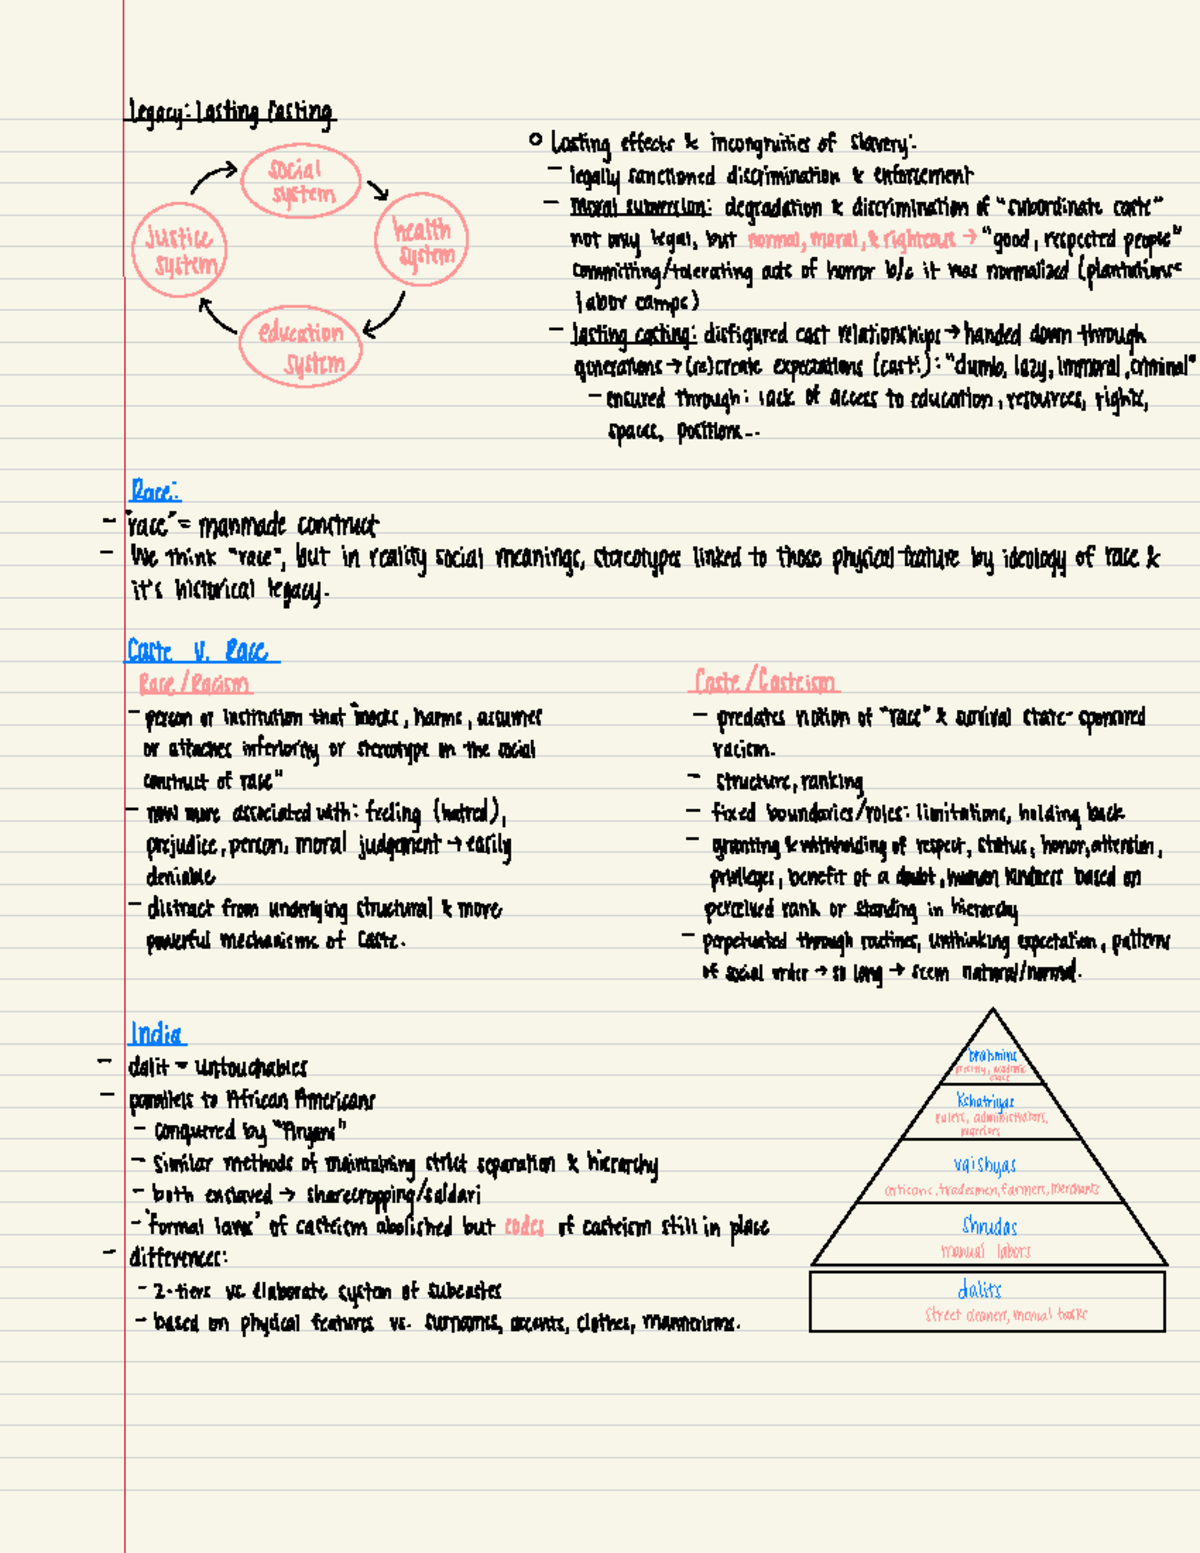 legacy: lasting casting
social
system
health
system
education
system
justice
system
○ Lasting effects & incongruities of slavery:
- legally sanctioned discrimination & enforcement
- Moral subversion: degradation & discrimination of "subordinate caste"
not only legal, but normal, moral, & righteous → "good, respected people"
committing/tolerating acts of horror b/c it was normalized (plantations=
labor camps)
- lasting casting: disfigured cast relationships → handed down through
generations → (re)create expectations (cast:) : "dumb, lazy, immoral, criminal"
- ensured through: lack of access to education, resources, rights,
spaces, positions...
Race:
- "race" = manmade construct
- We think "race", but in reality social meanings, stereotypes linked to those physical feature by ideology of race &
it's historical legacy.
Caste v. Race
Race/Racism
- person or institution that "mocks, harms, assumes
or attaches inferiority or stereotype in the social
construct of race"
- now more associated with: feeling (hatred),
prejudice, person, moral judgement → easily
deniable
- distract from underlying structural & more
powerful mechanisms of Caste.
Caste/Casteism
- predates notion of "race" & survival state-sponsored
racism.
- structure, ranking
- fixed boundaries/roles: limitations, holding back
- granting & withholding of respect, status, honor, attention,
privileges, benefit of a doubt, human kindness based on
perceived rank or standing in hierarchy
- perpetuated through routines, unthinking expectation, patterns
of social order → so long → seem natural/normal.
India
- dalit = untouchables
- parallels to African Americans
- conquered by "Aryans"
- similar methods of maintaining strict separation & hierarchy
- both enslaved → sharecropping/saldari
- "formal laws" of casteism abolished but codes of casteism still in place
- differences:
- 2-tiers vs. elaborate system of subcastes
- based on physical features vs. surnames, accents, clothes, mannerisms.
brahmins
priestly, academic
class
Kshatriyas
rulers, administrators,
warriors
vaishyas
artisans, tradesmen, farmers, merchants
Shrudas
manual labors
dalits
street cleaners, menial tasks